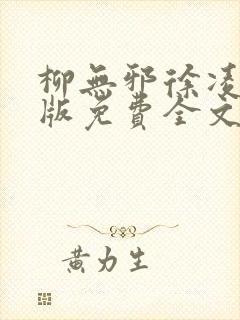 柳無邪徐凌
版免費全文
黃力生